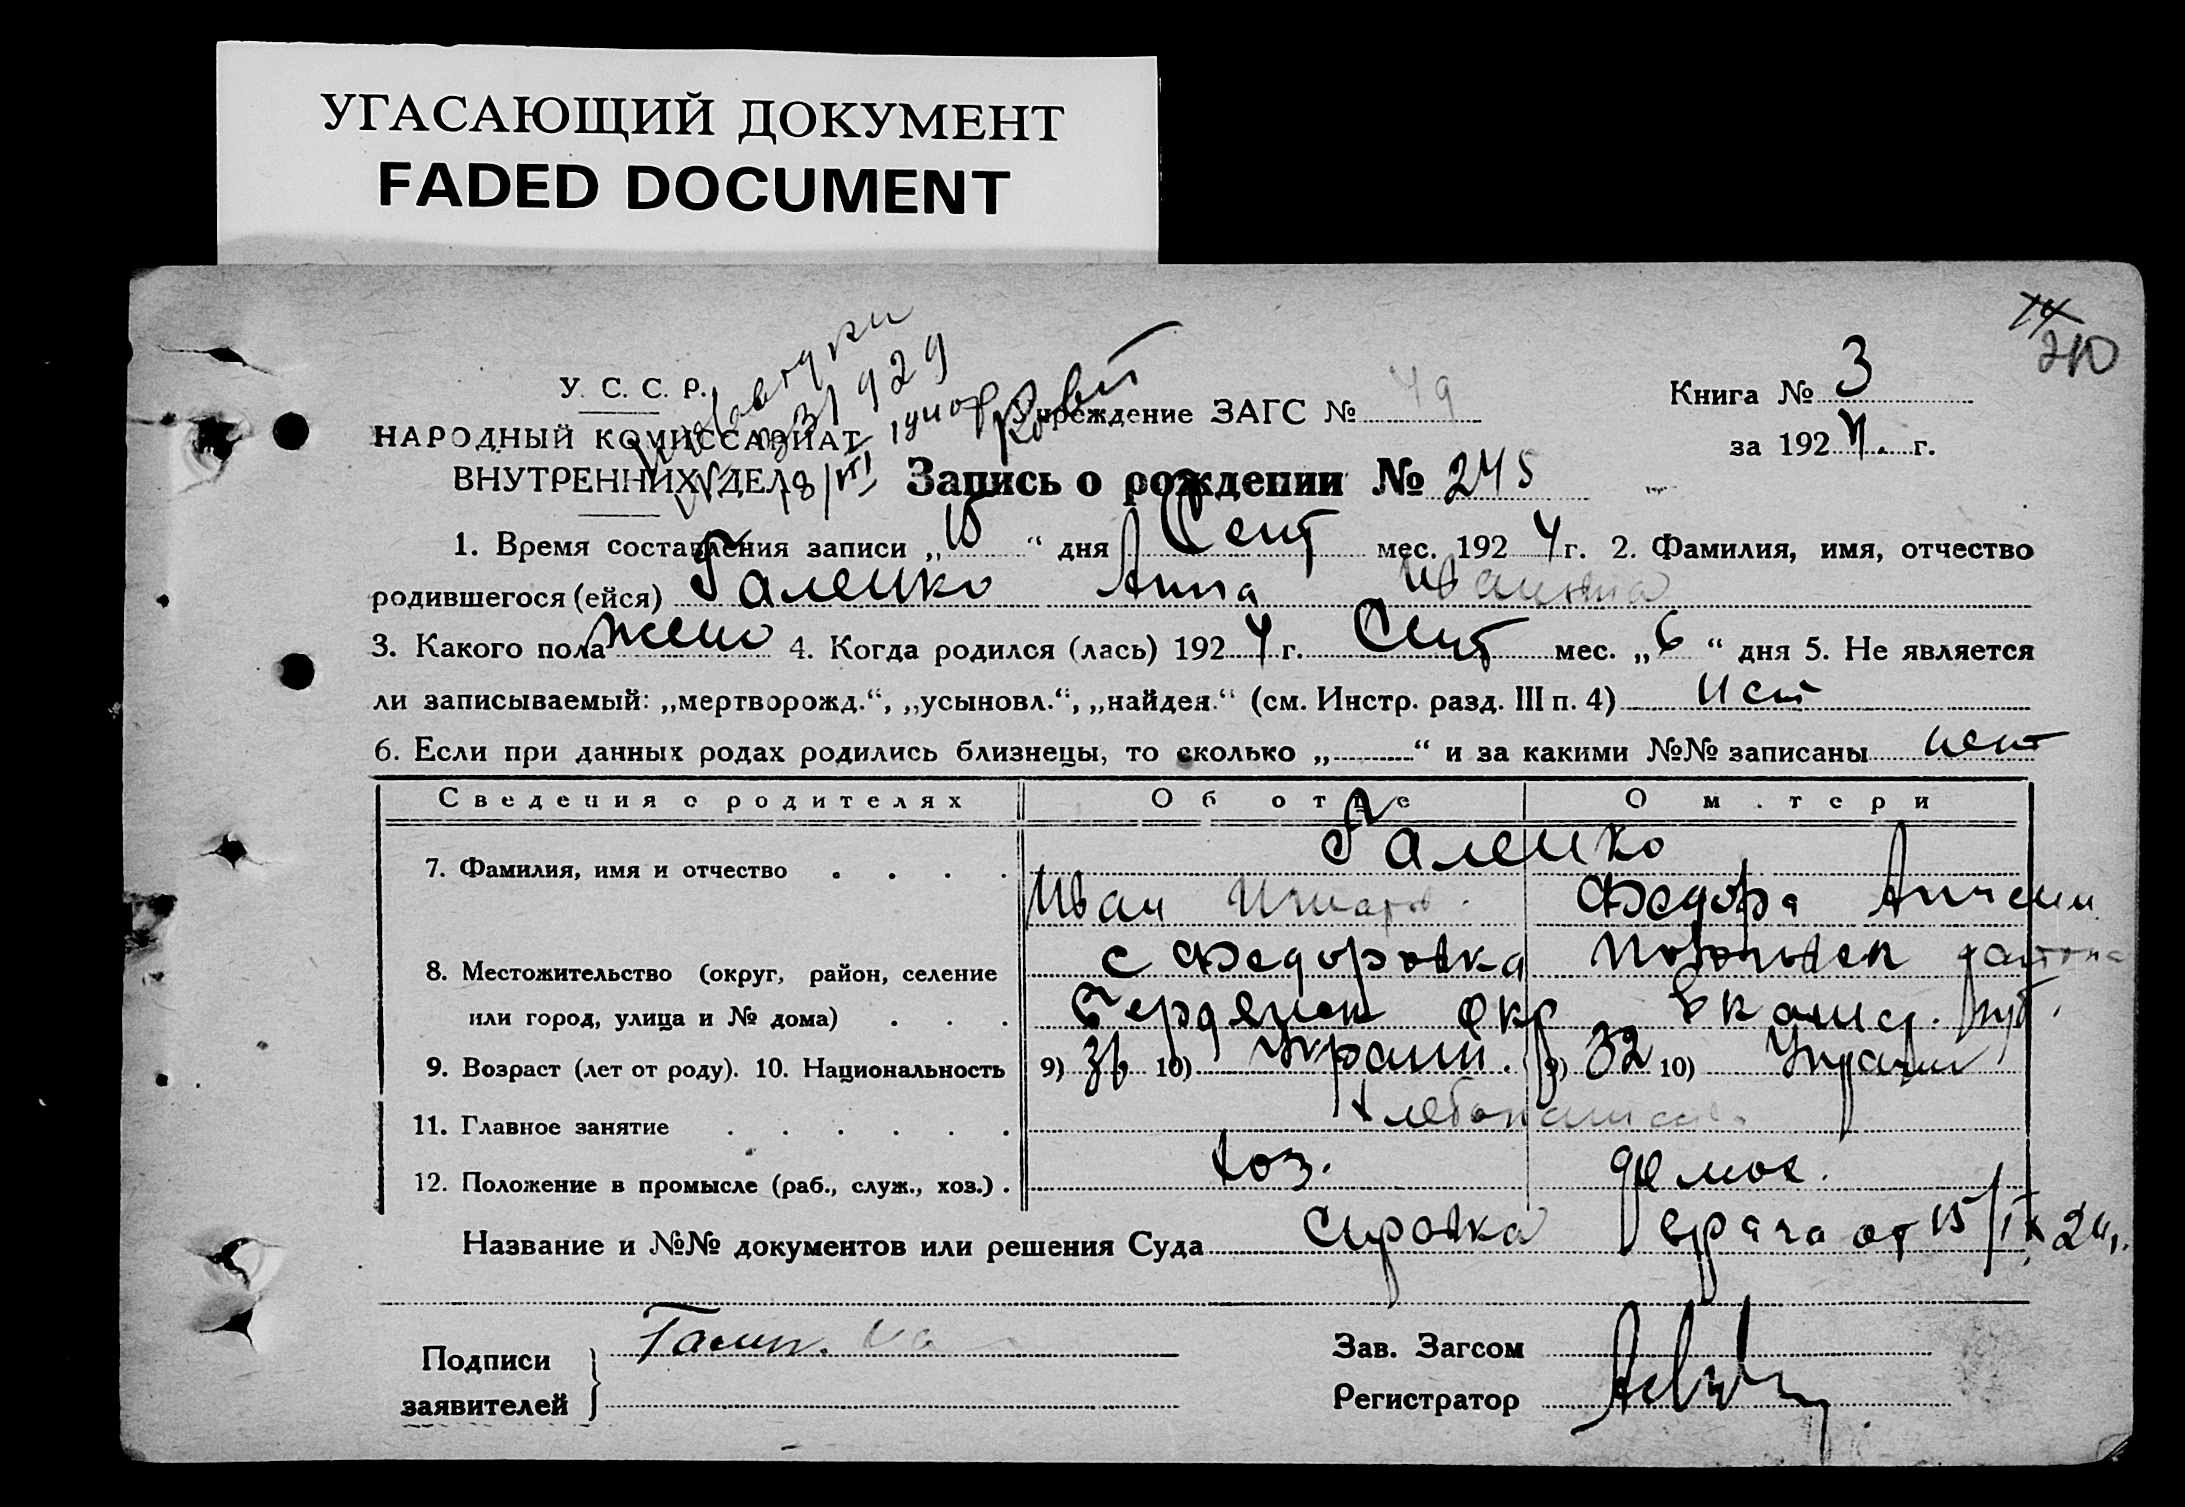 УГАСАЮЩИЙ ДОКУМЕНТ
FADED DOCUMENT
14
210
У. С. С. Р.
НАРОДНЫЙ КОМИССАРИАТ
ВНУТРЕННИХ ДЕЛ
Учреждение ЗАГС № 49
Книга № 3
за 1924 г.
Запись о рождении № 245
1. Время составления записи „15“ дня Сент мес. 1924 г. 2. Фамилия, имя, отчество
родившегося (ейся) Галенко Анна Ивановна
3. Какого пола жено 4. Когда родился (лась) 1924 г. Сент мес. „6“ дня 5. Не является
ли записываемый: „мертворожд.“, „усыновл.“, „найден.“ (см. Инстр. разд. III п. 4) нет
6. Если при данных родах родились близнецы, то сколько „ “ и за какими №№ записаны нет
Сведения о родителях Об отце О матери
Галенко
7. Фамилия, имя и отчество
Иван Федора
8. Местожительство (округ, район, селение с Федоровка района
или город, улица и № дома) Бердянск окр Екатер. губ.
9. Возраст (лет от роду). 10. Национальность 9) 36 10) Украин. 9) 32 10) Украин
11. Главное занятие Хлебопашество
12. Положение в промысле (раб., служ., хоз.) хоз. демох.
Название и №№ документов или решения Суда Справка врача от 15/IX 24 г.
Подписи
заявителей
Зав. Загсом
Регистратор